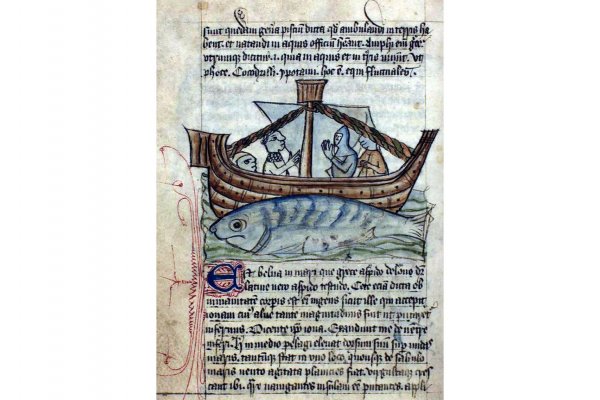 sunt quedam gen̄a pisciū dicta qđ ambulandi in terris ha
bent. et natandi in aquis officiū h̄ant. Amphi em̄ gre
utrumque dicitur .i. quia in aquis et in t̄ris uiuūt. Vt
phoce. Cocodrilli. ypotami. hoc ē equi fluctuales.
Est belua in mari que grece aspido delone dr̄
latine uero aspido testudo. Cete eciā dicta ob
inmanitatē corꝑis est eī ingens sicut ille qui excepit
ionam cuiꝰ alus tante magnitudinis fuit ut putaret
infernus. Dicente ip̄o iona. Exaudiuit me de uentre
inferi. in medio pelagi eleuat dorsum suū sup̄ undas
maris. tantūque stat in uno loco. quousque de sabulo
maris uento agitata planicies fiat. uirgultaque cres
cant ibi. nauigantes insulam eē putantes. appli